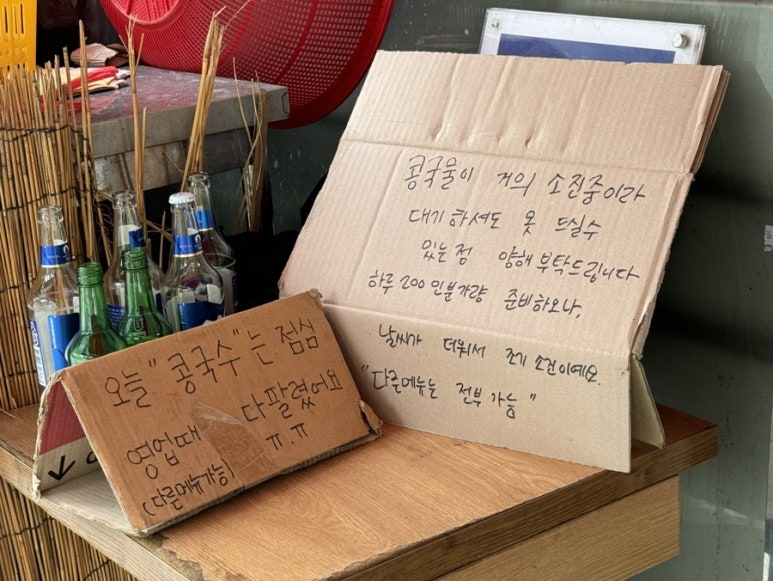 콩국물이 거의 소진중이라
대기하셔도 못 드실수
있는점 양해부탁드립니다
하루 200인분가량 준비하오나,
날씨가 더워서 조기 소진이예요.
"다른메뉴는 전부 가능"
오늘 "콩국수"는 점심
영업때 다팔렸어요
(다른메뉴가능) ㅠ.ㅠ